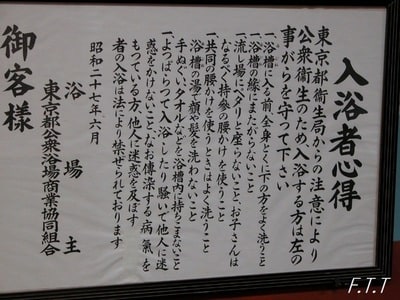 入浴者心得
東京都衛生局からの注意により
公衆衛生のため、入浴する方は左の
事がらを守つて下さい
一、浴槽に入る前、全身とくに下の方をよく洗うこと
一、浴槽の縁にまたがらないこと
一、流し場にペタリと座らないこと、お子さんは
なるべく持参の腰かけを使うこと
一、共同の腰かけを使うときはよく洗うこと
一、浴槽の湯で顔や髪を洗わないこと
手ぬぐい、タオルなどを浴槽内に持ちこまないこと
一、よつぱらつて入浴したり騒いで他人に迷
惑をかけないこと、なお傳染する病氣を
もつている方、他人に迷惑を及ぼす
者の入浴は法により禁ぜられております
昭和二十七年六月
浴場主
東京都公衆浴場商業協同組合
御客様
F.T.T